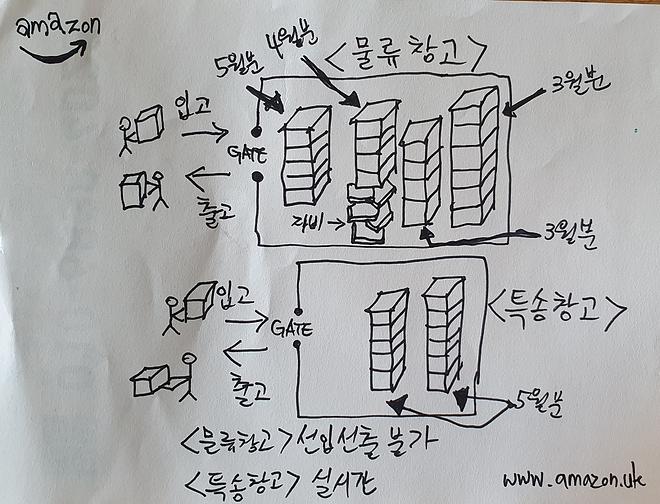 amazon
<물류창고>
5월분
4월분
3월분
입고
GATE
출고
자비
3월분
<특송창고>
입고
GATE
출고
5월분
<물류창고> 선입선출 불가
<특송창고> 실시간
www.amazon.uk